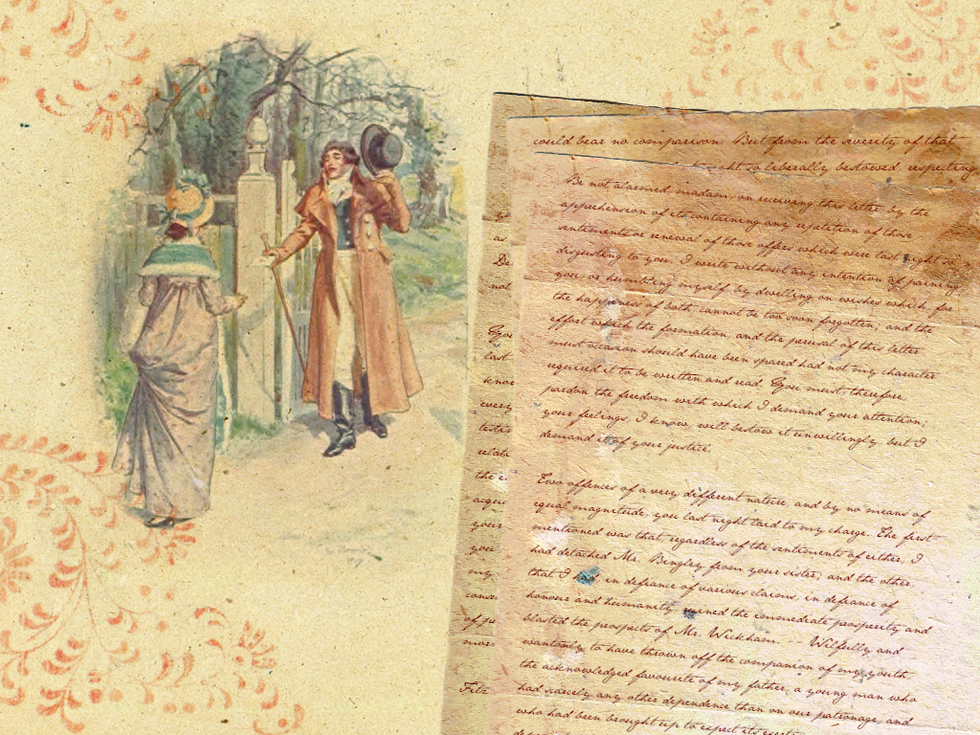 could bear no comparison. But from the severity of that
so liberally bestowed respecting
Be not alarmed, madam, on receiving this letter, by the
apprehension of its containing any repetition of those
sentiments or renewal of those offers which were last night so
disgusting to you. I write without any intention of paining
you, or humbling myself, by dwelling on wishes which, for
the happiness of both, cannot be too soon forgotten; and the
effort which the formation, and the perusal of this letter
must occasion should have been spared had not my character
required it to be written and read. You must, therefore,
pardon the freedom with which I demand your attention;
your feelings, I know, will bestow it unwillingly, but I
demand it of your justice.
Two offences of a very different nature, and by no means of
equal magnitude, you last night laid to my charge. The first
mentioned was, that, regardless of the sentiments of either, I
had detached Mr. Bingley from your sister; and the other,
that I had, in defiance of various claims, in defiance of
honour and humanity, ruined the immediate prosperity and
blasted the prospects of Mr. Wickham. Wilfully and
wantonly to have thrown off the companion of my youth,
the acknowledged favourite of my father, a young man who
had scarcely any other dependence than on our patronage, and
who had been brought up to expect its
as
not
last
the
your
my
Fitz